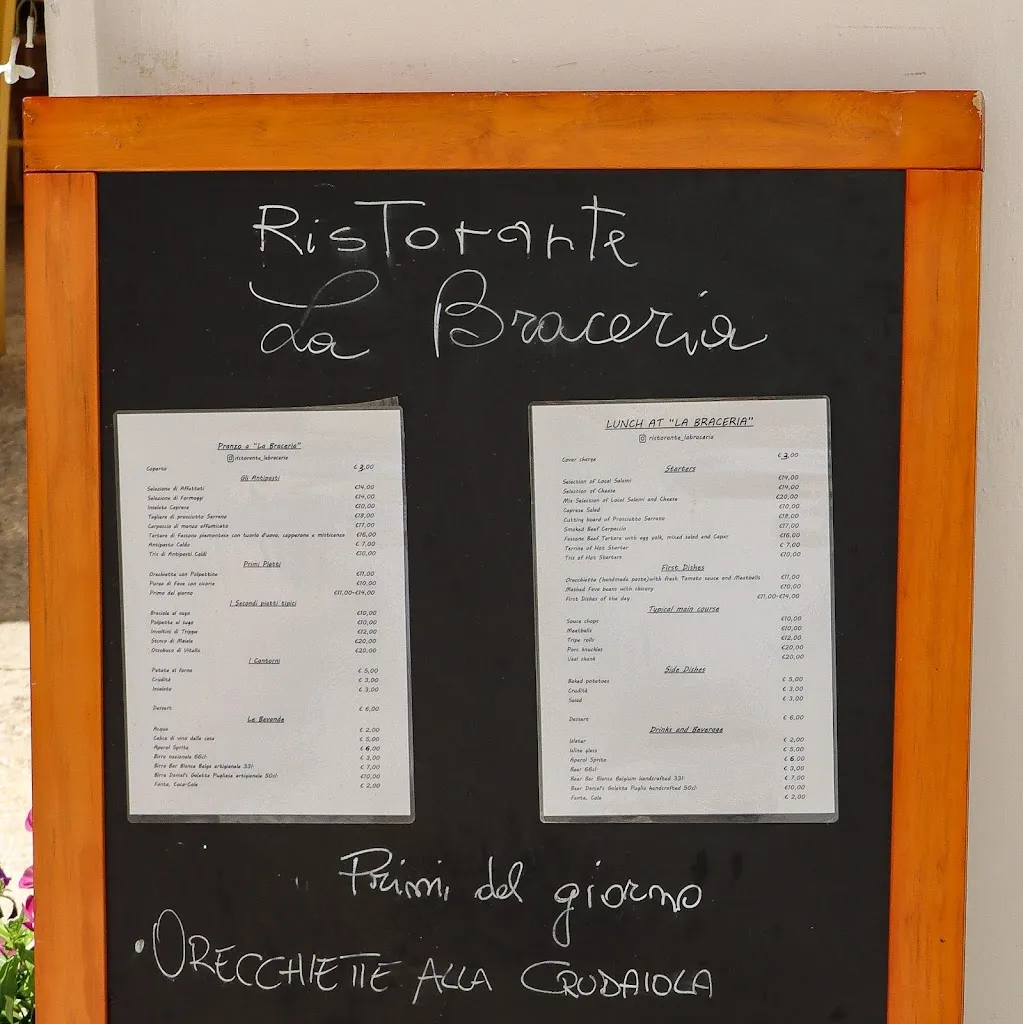 Ristorante
La Braceria
Pranzo a "La Braceria"
ristorante_labraceria
Coperto € 3,00
Gli Antipasti
Selezione di Affettati €14,00
Selezione di Formaggi €14,00
Insalata Caprese €10,00
Tagliere di prosciutto Serrano €18,00
Carpaccio di manzo affumicato €17,00
Tartare di Fassona piemontese con tuorlo d'uovo, capperone e misticanza €16,00
Antipasto Caldo € 7,00
Tris di Antipasti Caldi €10,00
Primi Piatti
Orecchiette con Polpettine €11,00
Purea di Fave con cicorie €10,00
Primo del giorno €11,00-€14,00
I Secondi piatti tipici
Braciola al sugo €10,00
Polpette al sugo €10,00
Involtini di Trippa €12,00
Stinco di Maiale €20,00
Ossobuco di Vitello €20,00
I Contorni
Patate al forno € 5,00
Crudità € 3,00
Insalata € 3,00
Dessert € 6,00
Le Bevande
Acqua € 2,00
Calice di vino della casa € 5,00
Aperol Spritz € 6,00
Birra nazionale 66cl € 3,00
Birra Bar Blanca Belga artigianale 33l € 7,00
Birra Daniel's Goletta Pugliese artigianale 50cl €10,00
Fanta, Coca-Cola € 2,00
LUNCH AT "LA BRACERIA"
ristorante_labraceria
Cover charge € 3,00
Starters
Selection of Local Salami €14,00
Selection of Cheese €14,00
Mix Selection of Local Salami and Cheese €20,00
Caprese Salad €10,00
Cutting board of Prosciutto Serrano €18,00
Smoked Beef Carpaccio €17,00
Fassona Beef Tartare with egg yolk, mixed salad and Caper €16,00
Terrine of Hot Starter € 7,00
Tris of Hot Starters €10,00
First Dishes
Orecchiette (handmade pasta)with fresh Tomato sauce and Meatballs €11,00
Mashed Fava beans with chicory €10,00
First Dishes of the day €11,00-€14,00
Typical main course
Sauce chops €10,00
Meatballs €10,00
Tripe rolls €12,00
Porc knuckles €20,00
Veal shank €20,00
Side Dishes
Baked potatoes € 5,00
Crudité € 3,00
Salad € 3,00
Dessert € 6,00
Drinks and Beverage
Water € 2,00
Wine glass € 5,00
Aperol Spritz € 6,00
Beer 66cl € 3,00
Beer Bar Blanca Belgium handcrafted 33l € 7,00
Beer Daniel's Goletta Puglia handcrafted 50cl €10,00
Fanta, Cola € 2,00
Primi del giorno
• ORECCHIETTE ALLA CRUDAIOLA